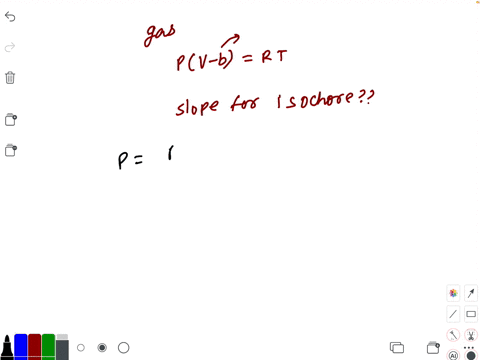 gas
P(V-b) = RT
slope for isochore??
P =